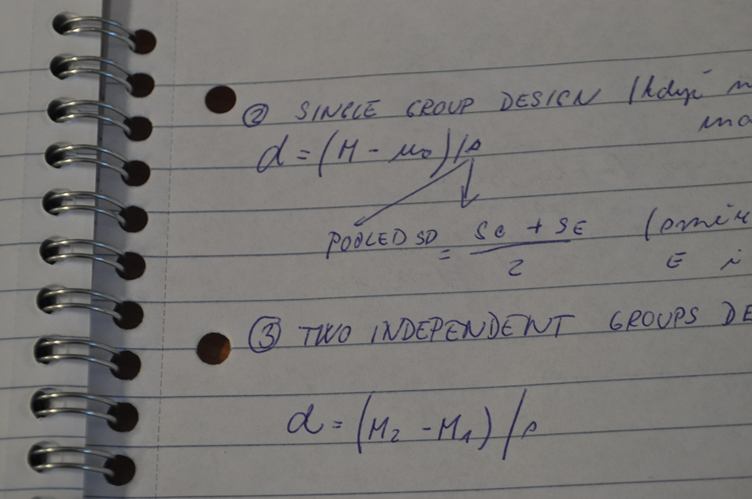 ② SINGLE GROUP DESIGN (když
d = (M - μ₀)/s
POOLED SD = (Sc + SE)/2
E i
③ TWO INDEPENDENT GROUPS DE
d = (M₂ - M₁)/s